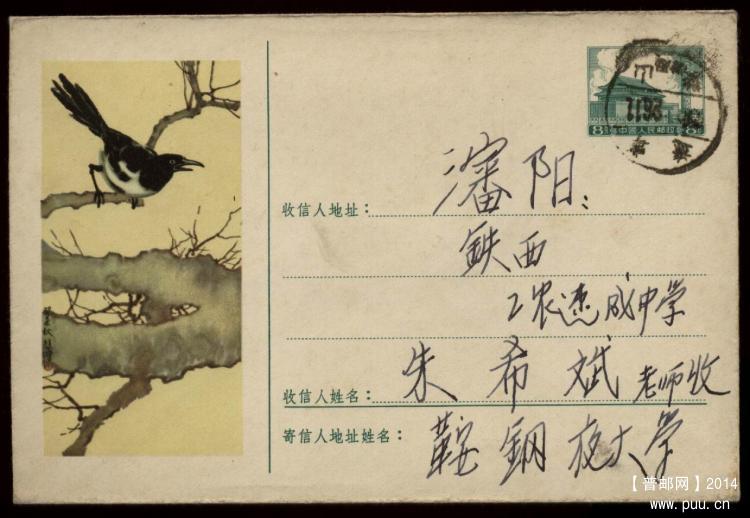 8 中國人民郵政 8
收信人地址：瀋阳：
鉄西
2农速成中学
收信人姓名：朱希斌老师收
寄信人地址姓名：鞍鋼夜大学
【普邮网】2014
www.puu.cn